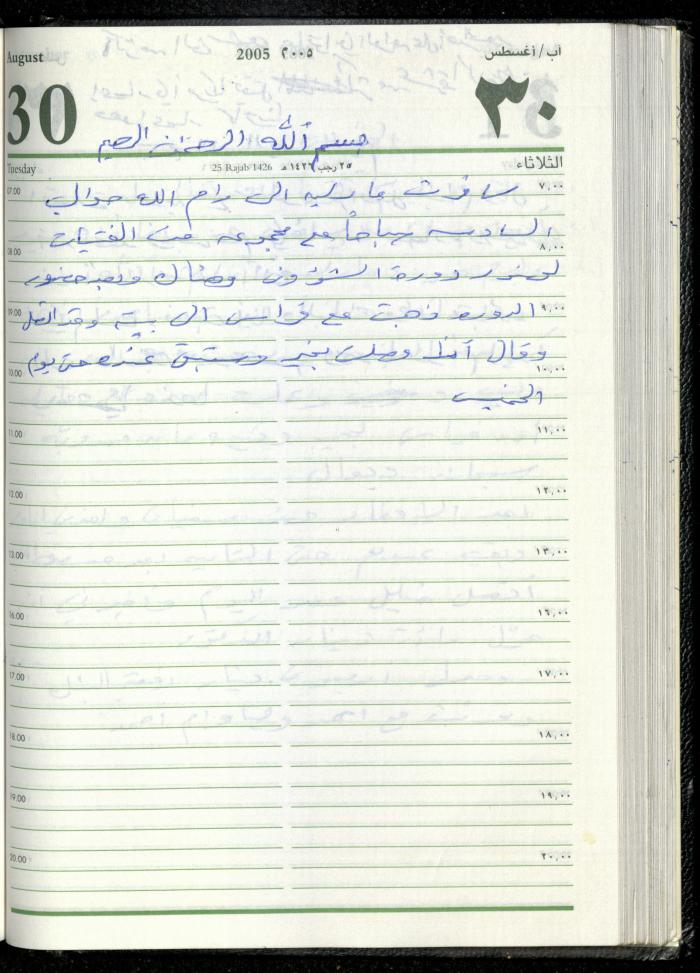 August 2005 ٢٠٠٥ آب/أغسطس
30 ٣٠
بسم الله الرحمن الرحيم
Tuesday 25 Rajab 1426 ٢٥ رجب ١٤٢٦ هـ الثلاثاء
07.00 سافرت ماريه الى رام الله حوالي ٧,٠٠
السادسه صباحاً مع مجموعه من الفتيات
08.00 ٨,٠٠
لحضور دورة الشؤون وهناك وبعد حضور
09.00 الدوره ذهبت مع فراس الى بيته وقد اتصل ٩,٠٠
وقال أنها وصلت بخير وستبقى عنده حتى يوم
10.00 ١٠,٠٠
الخميس
11.00 ١١,٠٠
12.00 ١٢,٠٠
13.00 ١٣,٠٠
16.00 ١٦,٠٠
17.00 ١٧,٠٠
18.00 ١٨,٠٠
19.00 ١٩,٠٠
20.00 ٢٠,٠٠